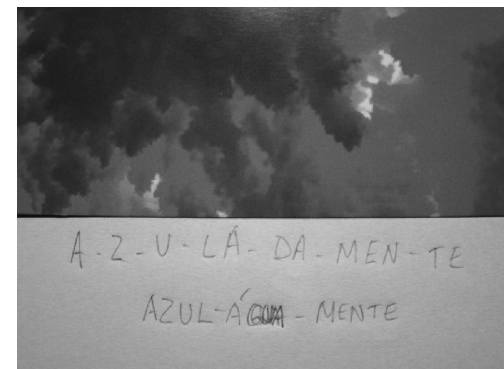 A-Z-U-LÁ-DA-MEN-TE
AZUL-ÁGUA-MENTE